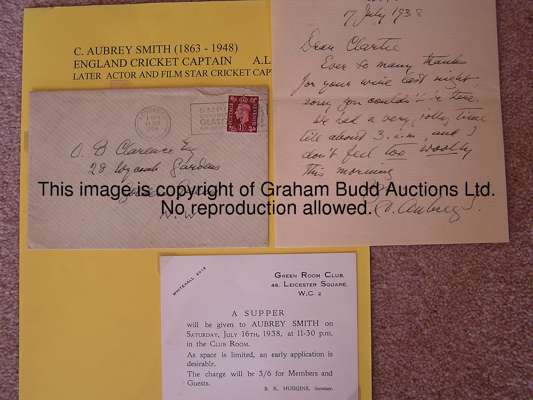 C. AUBREY SMITH (1863 - 1948)
ENGLAND CRICKET CAPTAIN A.L
LATER ACTOR AND FILM STAR CRICKET CAP
7 July 1938
Dear Clartie
Ever so many thanks
for your wire last night
sorry you couldn't be there.
We had a very jolly time
till about 3. a.m, and I
don't feel too woolly
this morning
C. Aubrey S.
O B Clarence Esq
28 Wycomb Gardens
Golders Green
N.W.
This image is copyright of Graham Budd Auctions Ltd.
No reproduction allowed.
WHITEHALL
GREEN ROOM CLUB,
46, LEICESTER SQUARE,
W.C. 2
A SUPPER
will be given to AUBREY SMITH on
SATURDAY, JULY 16TH, 1938, at 11-30 p.m.
in the CLUB ROOM.
As space is limited, an early application is
desirable.
The charge will be 3/6 for Members and
Guests.
HUGGINS, Secretary.